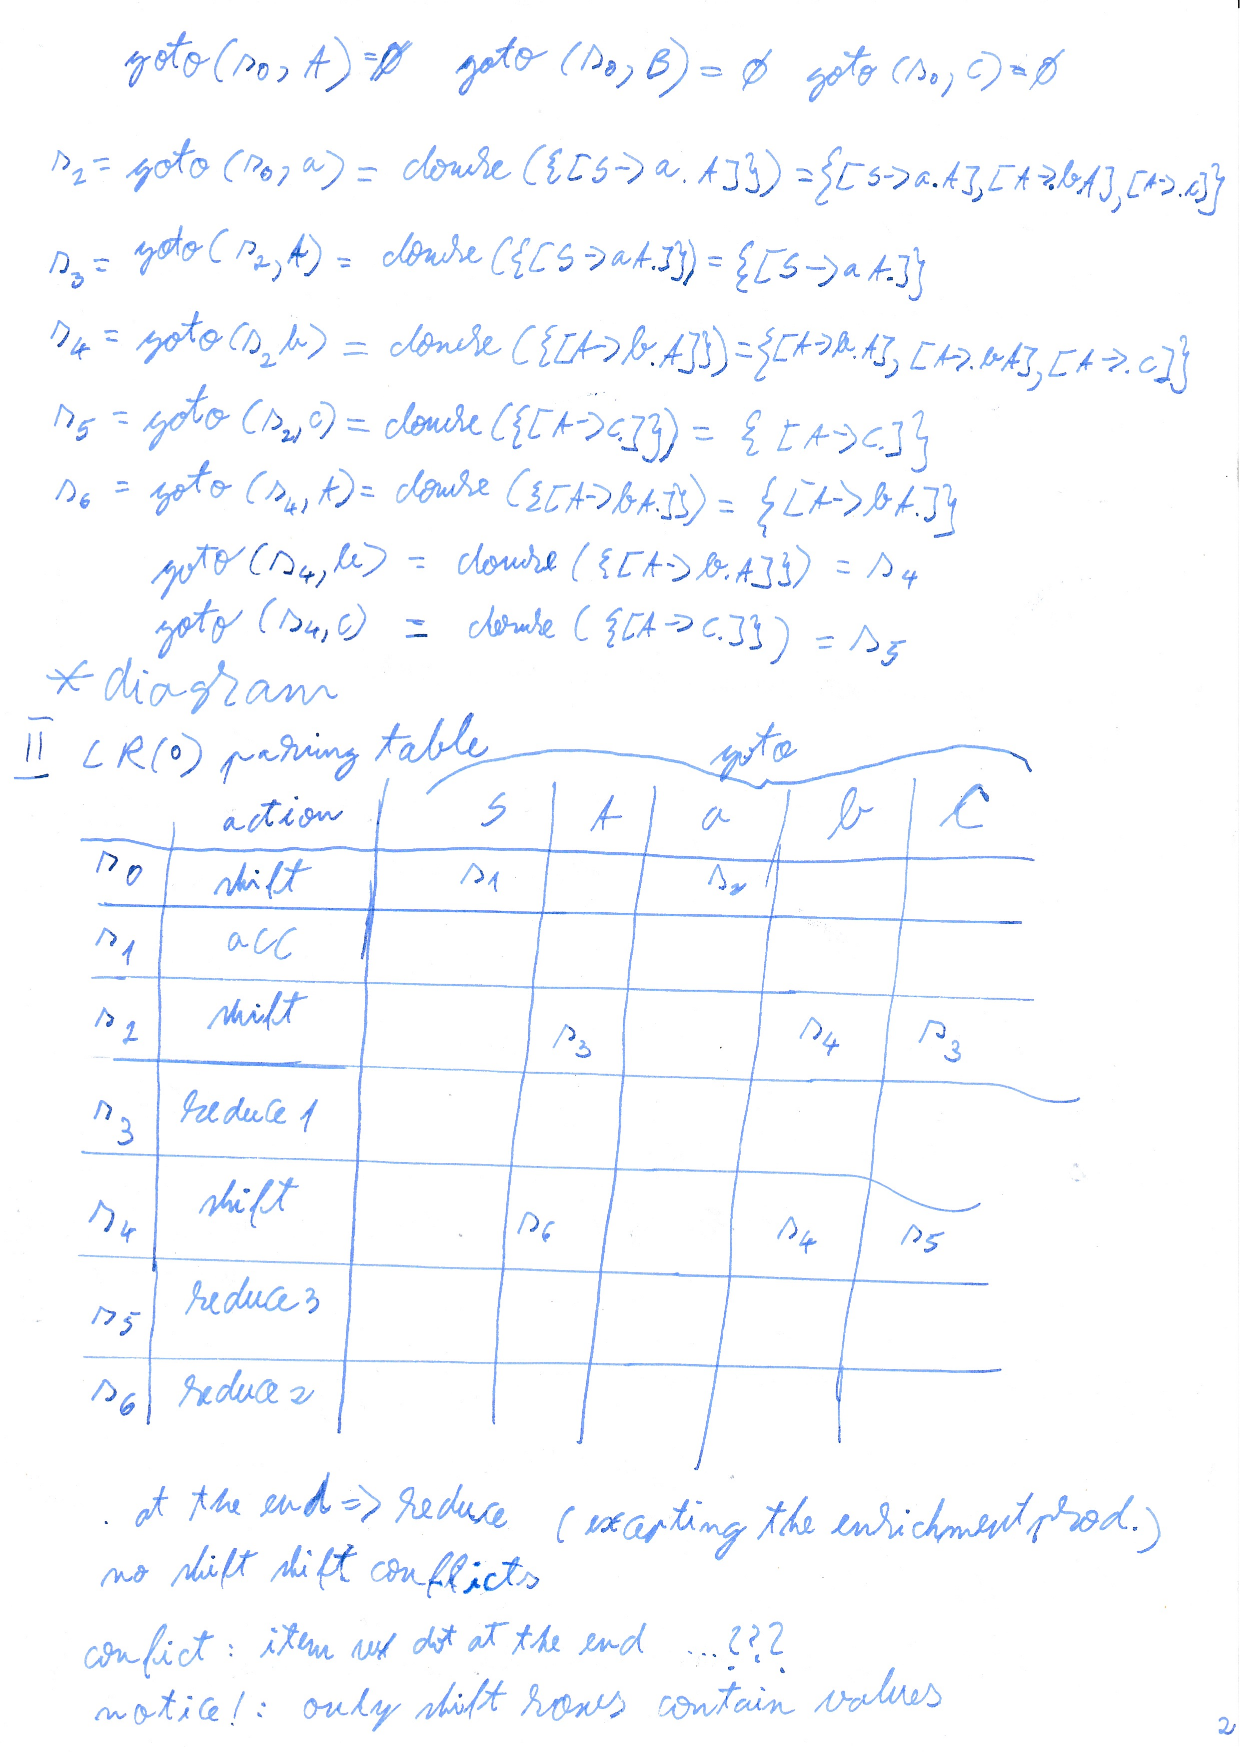 goto(s0, A)=∅ goto (s0, B) = ∅ goto (s0, C)=∅
s2 = goto (s0, a) = closure ({[S->a.A]}) = {[S->a.A],[A->.bA],[A->.c]}
s3 = goto(s2, A) = closure({[S->aA.]}) = {[S->aA.]}
s4 = goto(s2 b) = closure ({[A->b.A]})={[A->b.A], [A->.bA], [A->.c]}
s5 = goto (s2, c) = closure ({[A->c.]}) = {[A->c.]}
s6 = goto (s4, A)= closure ({[A->bA.]}) = {[A->bA.]}
goto (s4, b) = closure ({[A->b.A]}) = s4
goto (s4, c) = closure ({[A->c.]}) = s5
* diagram
II LR(0) parsing table goto
action S A a b C
s0 shift s1 s2
s1 acc
s2 shift s3 s4 s3
s3 reduce 1
s4 shift s6 s4 s5
s5 reduce 3
s6 reduce 2
. at the end => reduce (excepting the enrichment prod.)
no shift shift conflicts
confict: item dot at the end ...???
notice!: only shift rows contain values
2